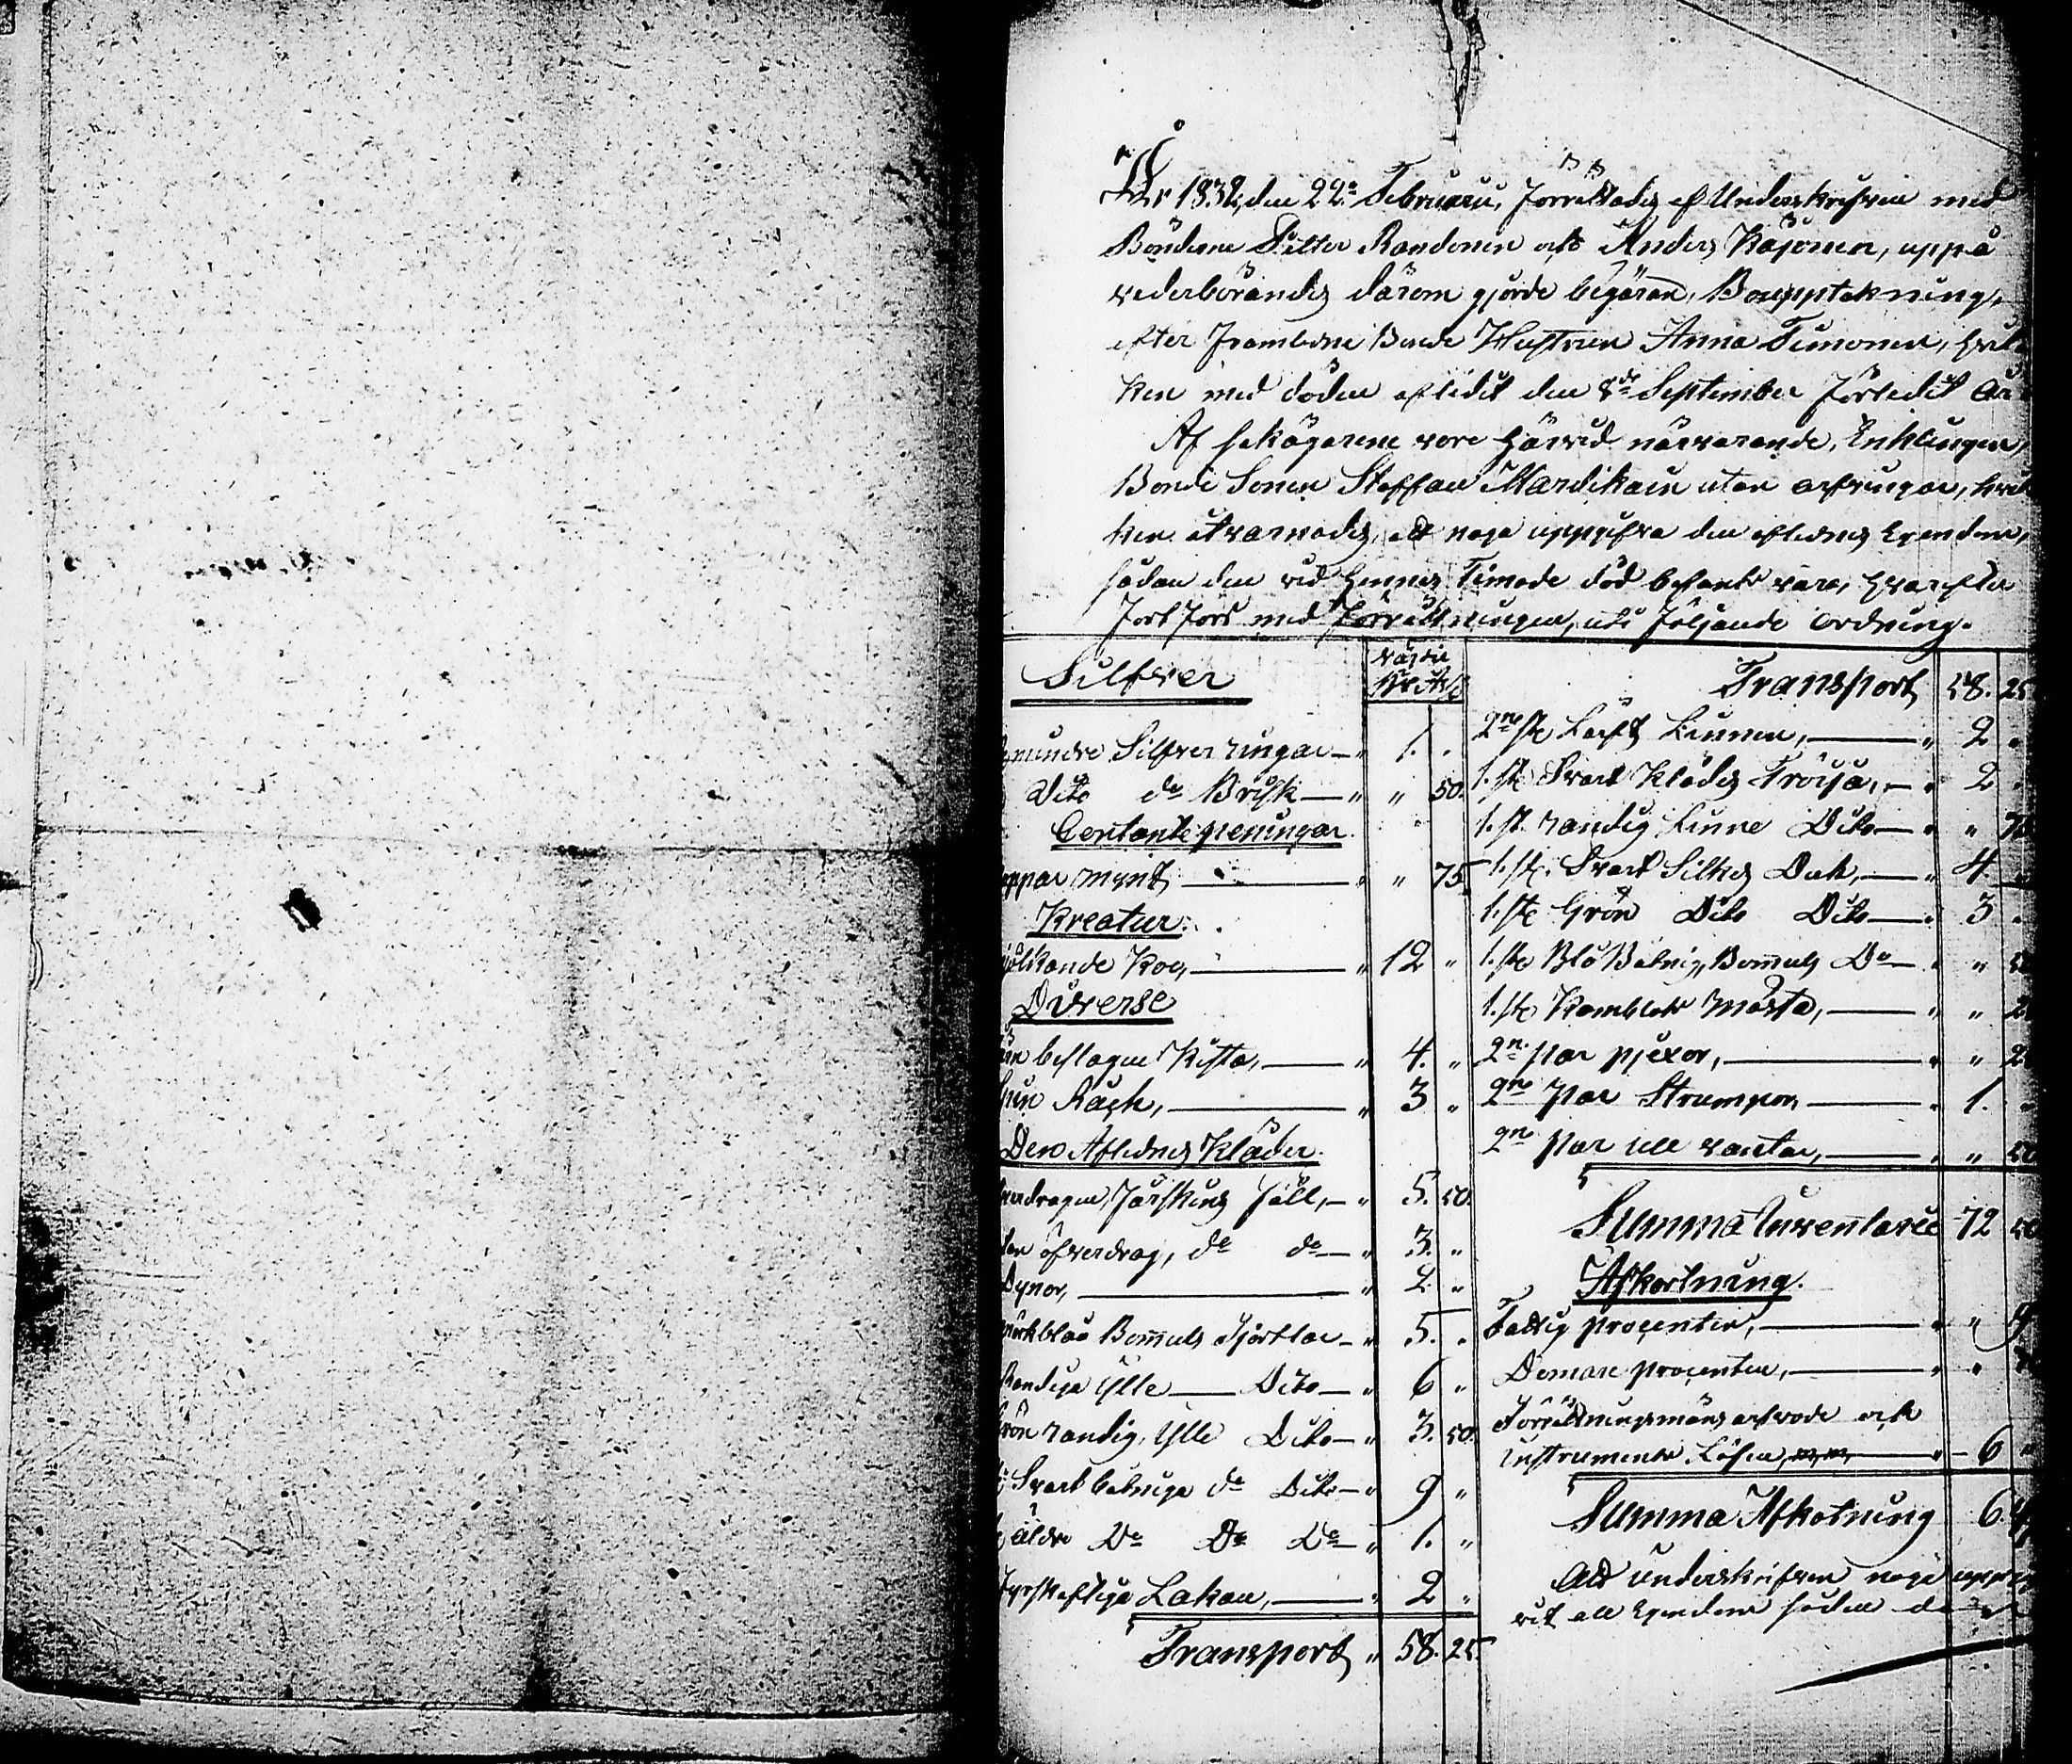 År 1832, den 22a Februarii, förrättades af Underskrifven med
Bönderne Petter Randonen och Anders Käjonen, uppå
vederbörandes därom gjorde begäran, Bouppteckning,
efter framledne Bonde Hustrun Anna Timonen, hvil-
ken med döden aflidit den 8de September förledit År
Af sakägarene vore härvid närvarande, Enklingen,
Bonde Sonen Staffan Mardikain utan arfvingar, hvil
ken åtvarnades, att noga uppgifva den aflednes Egendom,
sådan den vid hennes timade död befants vara, hvarefter
fortfors med förrättningen, uti följande ordning.
Silfver
värde
mindre Silfver ringar — " 1. "
Dito do Brisk — " " 50.
Contante peningar
ppar mynt, — " " 75.
Kreatur.
ölkande Ko, — " 12 "
Diverse
rn beslagen Kista, — " 4. "
Räck, — " 3 "
Den Aflednes Kläder.
verdragen, fårskins fäll, — " 5. 50.
tan öfverdrag, do do — " 3. "
Dynor, — " 2. "
mörkblåa Bomuls Kjortlar — " 5. "
Randiga Ylle — Dito — " 6 "
rön randig, Ylle Dito — " 3. 50.
Svart botniga do Dito — " 9 "
äldre Do Do Do — " 1. "
fyrskaftiga Lakan, — " 2 "
Transport " 58. 25.
Transport 58. 25
2ne st. Linnen, — " 2 "
1. st. Svart Klädes Tröija, — " 2 "
1. st. randig Linne Dito — " "
1. st. Svart Silkes Duk, — " 4 "
1. st. Grön Dito Dito — " 3 "
1. st. Blå Botnig, Bomuls Do — " " 50
1. st. Kamblots Mössa, — " "
2ne par pjexor, — " "
2ne par Strumpor, — " 1. "
2ne par ulle vantar, — " " 50
Summa Inventarie 72 50
Afkortning.
Fattig procenter, — " "
Domare procenter, — " "
Förrättningsmäns arfvode och
instrumente Lösen, — " 6 "
Summa Afkortning 6.
Att underskrifven noga upp
vit all Egendom sådan